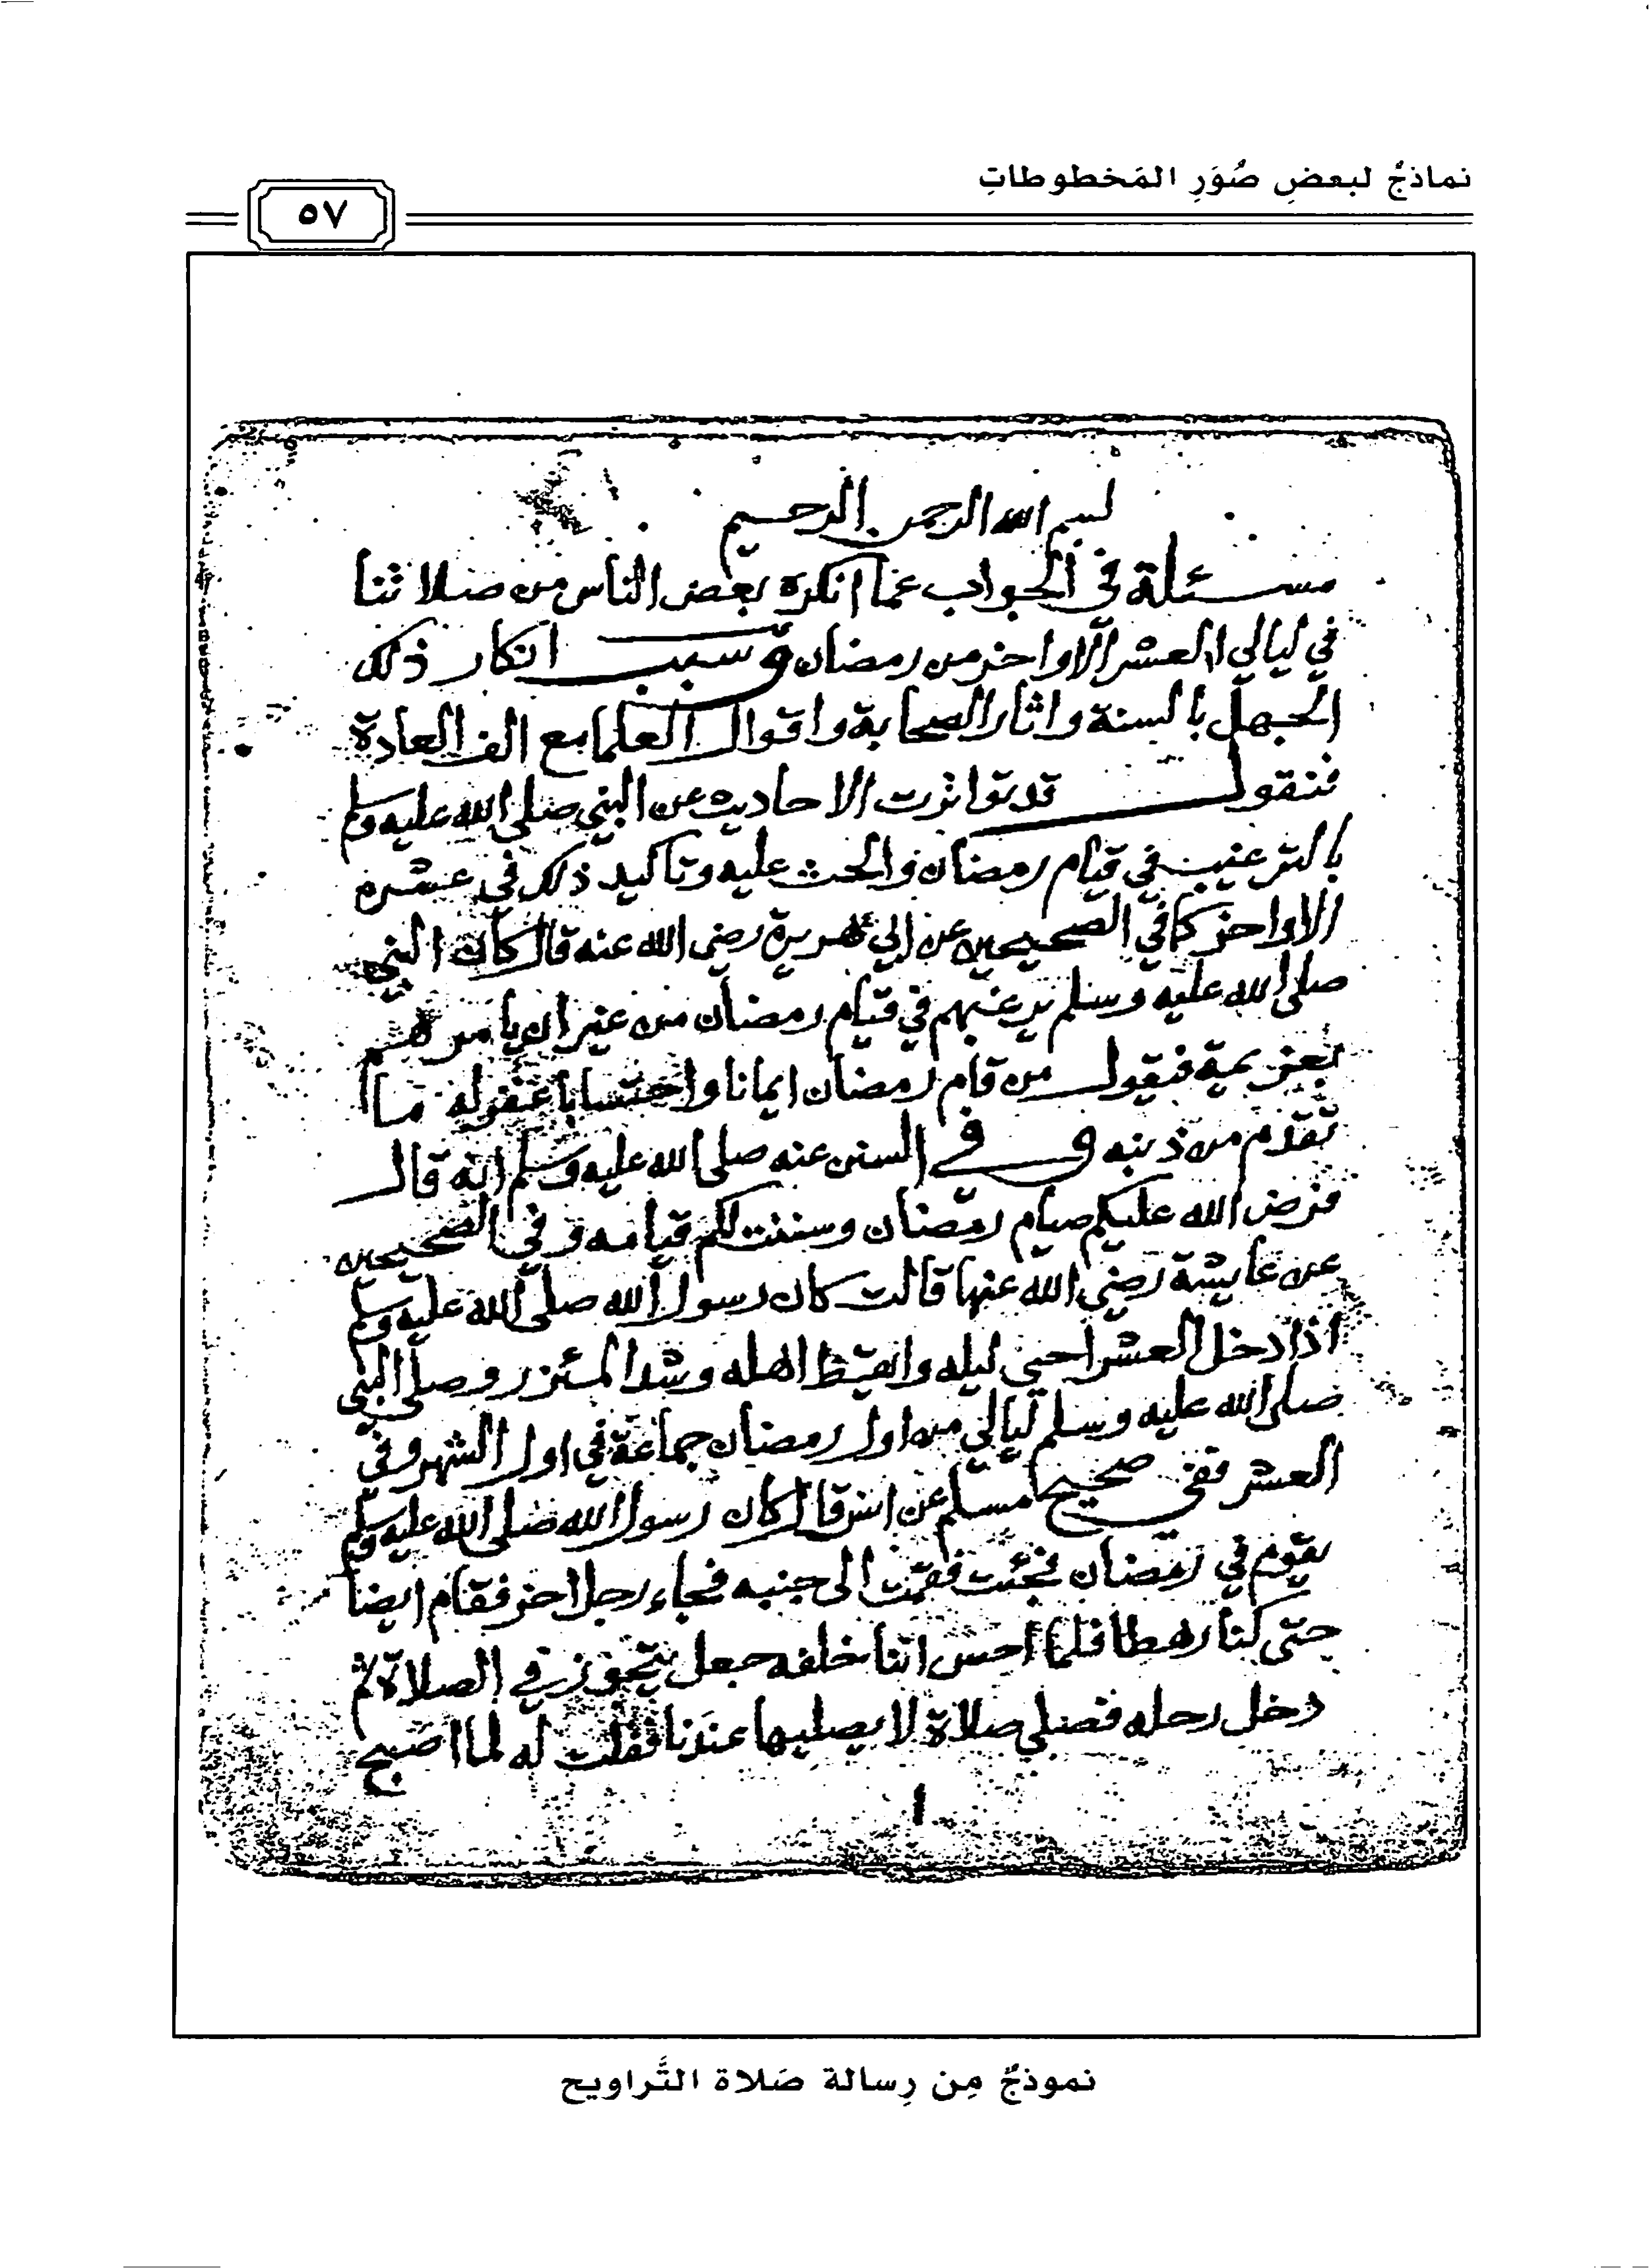 نماذجُ لبعضِ صُوَرِ المَخطوطاتِ
٥٧
بسم الله الرحمن الرحيم
مسئلة في الجواب عما انكره بعض الناس من صلاتنا
في ليالي العشر الاواخر من رمضان وسبب انكار ذلك
الجهل بالسنة واثار الصحابة واقوال العلما مع الف العادة
فنقول قد تواترت الاحاديث عن النبي صلى الله عليه وسلم
بالترغيب في قيام رمضان والحث عليه وتاكيد ذلك في عشره
الاواخر كما في الصحيحين عن ابي هريرة رضي الله عنه قال كان النبي
صلى الله عليه وسلم يرغبهم في قيام رمضان من غير ان يامرهم
بعزيمة فيقول من قام رمضان ايمانا واحتسابا غفر له ما
تقدم من ذنبه وفي السنن عنه صلى الله عليه وسلم انه قال
فرض الله عليكم صيام رمضان وسننت لكم قيامه وفي الصحيحين
عن عايشة رضي الله عنها قالت كان رسول الله صلى الله عليه وسلم
اذا دخل العشر احيى ليله وايقظ اهله وشد المئزر وصلى النبي
صلى الله عليه وسلم ليالي من اول رمضان جماعة في اول الشهر وفي
العشر ففي صحيح مسلم عن انس قال كان رسول الله صلى الله عليه وسلم
يقوم في رمضان فجئت فقمت الى جنبه فجاء رجل اخر فقام ايضا
حتى كنا رهطا فلما احس اننا خلفه جعل يتجوز في الصلاة ثم
دخل رحله فصلى صلاة لا يصليها عندنا فقلت له لما اصبح
نموذجٌ مِن رِسالة صَلاة التَّراويح